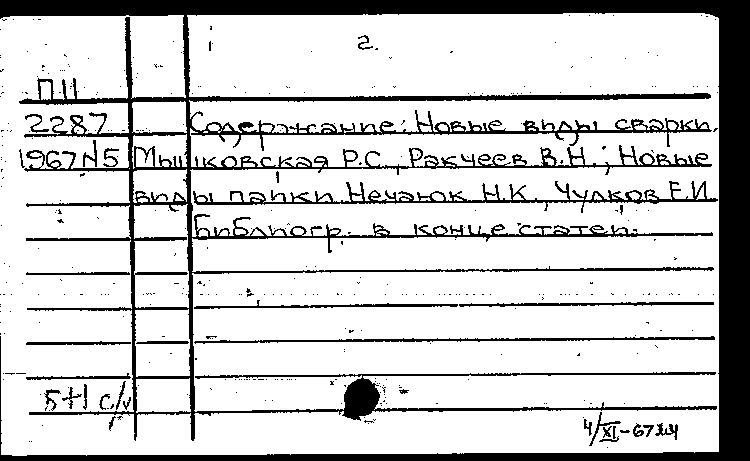 2.
П11
2287 Содержание: Новые виды сварки.
1967 N5 Мышковская Р.С., Ракчеев В.Н.; Новые
виды пайки Нечаюк Н.К., Чулков Е.И.
Библиогр. в конце статей.
5+1 с/v
4/XI-67